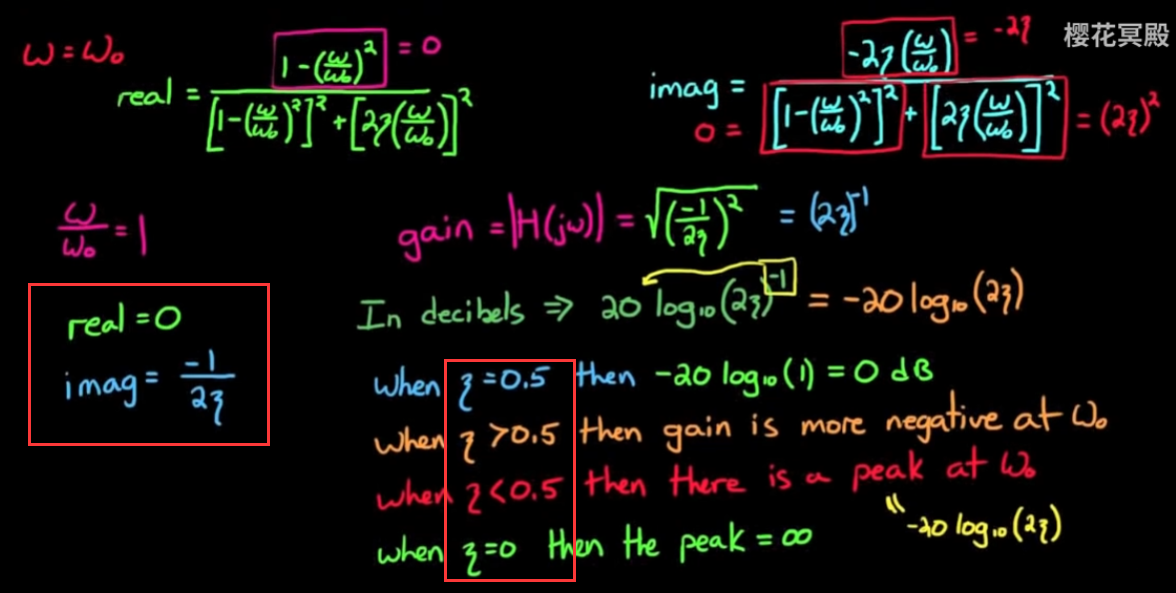 樱花冥殿
ω = ω₀
real = 1-(ω/ω₀)² / [1-(ω/ω₀)²]² + [2ζ(ω/ω₀)]²
= 0
imag = -2ζ(ω/ω₀) / [1-(ω/ω₀)²]² + [2ζ(ω/ω₀)]²
= -2ζ
0 =
= (2ζ)²
ω/ω₀ = 1
gain = |H(jω)| = √(-1/2ζ)² = (2ζ)⁻¹
real = 0
imag = -1/2ζ
In decibels ⇒ 20 log₁₀(2ζ)⁻¹ = -20 log₁₀(2ζ)
when ζ = 0.5 then -20 log₁₀(1) = 0 dB
when ζ > 0.5 then gain is more negative at ω₀
when ζ < 0.5 then there is a peak at ω₀
-20 log₁₀(2ζ)
when ζ = 0 then the peak = ∞